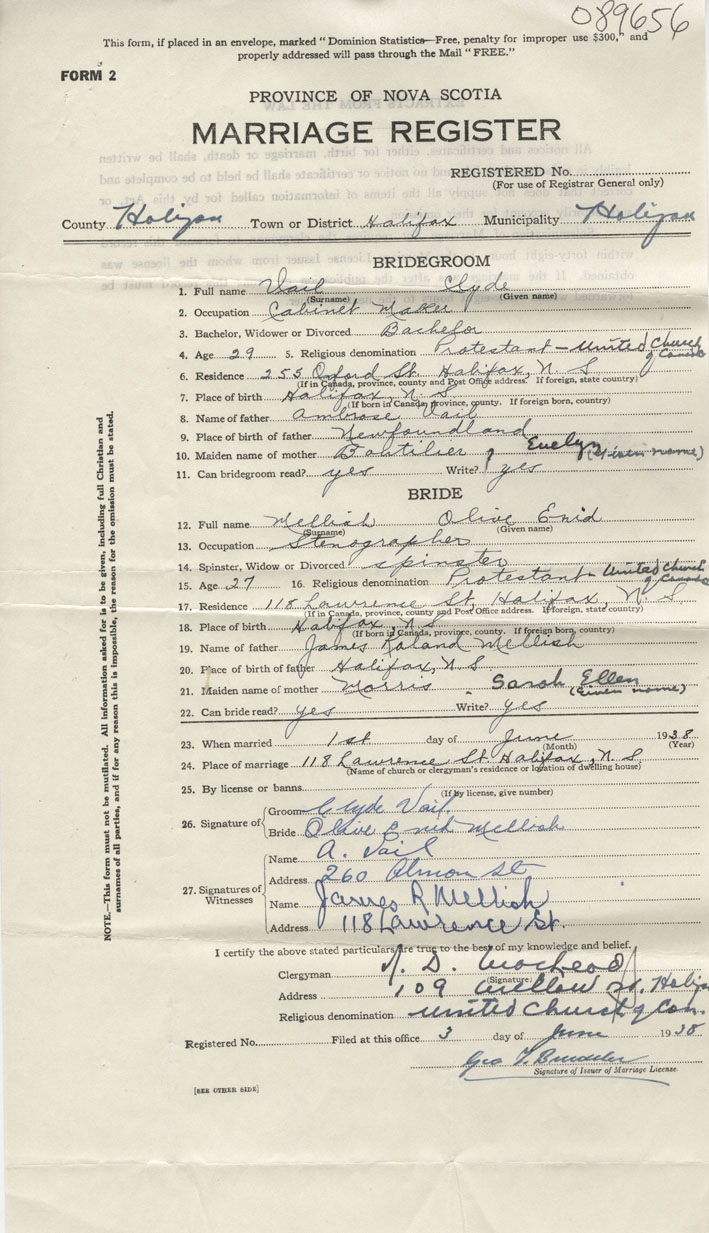 089656
This form, if placed in an envelope, marked “ Dominion Statistics—Free, penalty for improper use $300,” and
properly addressed will pass through the Mail “FREE.”
FORM 2
PROVINCE OF NOVA SCOTIA
MARRIAGE REGISTER
REGISTERED No.
(For use of Registrar General only)
County Halifax Town or District Halifax Municipality Halifax
BRIDEGROOM
1. Full name Vail Clyde
(Surname) (Given name)
2. Occupation Cabinet Maker
3. Bachelor, Widower or Divorced Bachelor
4. Age 29 5. Religious denomination Protestant – United Church of Canada
6. Residence 255 Oxford St. Halifax, N S
(If in Canada, province, county and Post Office address. If foreign, state country)
7. Place of birth Halifax, N. S.
(If born in Canada, province, county. If foreign born, country)
8. Name of father Ambrose Vail
9. Place of birth of father Newfoundland
10. Maiden name of mother Boutilier, Evelyn (Given name)
11. Can bridegroom read? yes Write? yes
BRIDE
12. Full name Mellish Olive Enid
(Surname) (Given name)
13. Occupation Stenographer
14. Spinster, Widow or Divorced spinster
15. Age 27 16. Religious denomination Protestant – United Church of Canada
17. Residence 118 Lawrence St, Halifax, N. S.
(If in Canada, province, county and Post Office address. If foreign, state country)
18. Place of birth Halifax, N S
(If born in Canada, province, county. If foreign born, country)
19. Name of father James Roland Mellish
20. Place of birth of father Halifax, N S
21. Maiden name of mother Morris " Sarah Ellen
(Given name)
22. Can bride read? yes Write? yes
23. When married 1st day of June 1938
(Month) (Year)
24. Place of marriage 118 Lawrence St Halifax, N. S
(Name of church or clergyman's residence or location of dwelling house)
25. By license or banns
(If by license, give number)
26. Signature of Groom Clyde Vail.
Bride Olive Enid Mellish
27. Signatures of Witnesses
Name A. Vail
Address 260 Almon St
Name James R Mellish
Address 118 Lawrence St.
I certify the above stated particulars are true to the best of my knowledge and belief.
Clergyman D.
(Signature)
Address 109 Willow St. Halifax
Religious denomination United Church of Can.
Registered No. Filed at this office 3 day of June 1938
Geo
Signature of Issuer of Marriage License.
[SEE OTHER SIDE]
NOTE.—This form must not be mutilated. All information asked for is to be given, including full Christian and
surnames of all parties, and if for any reason this is impossible, the reason for the omission must be stated.